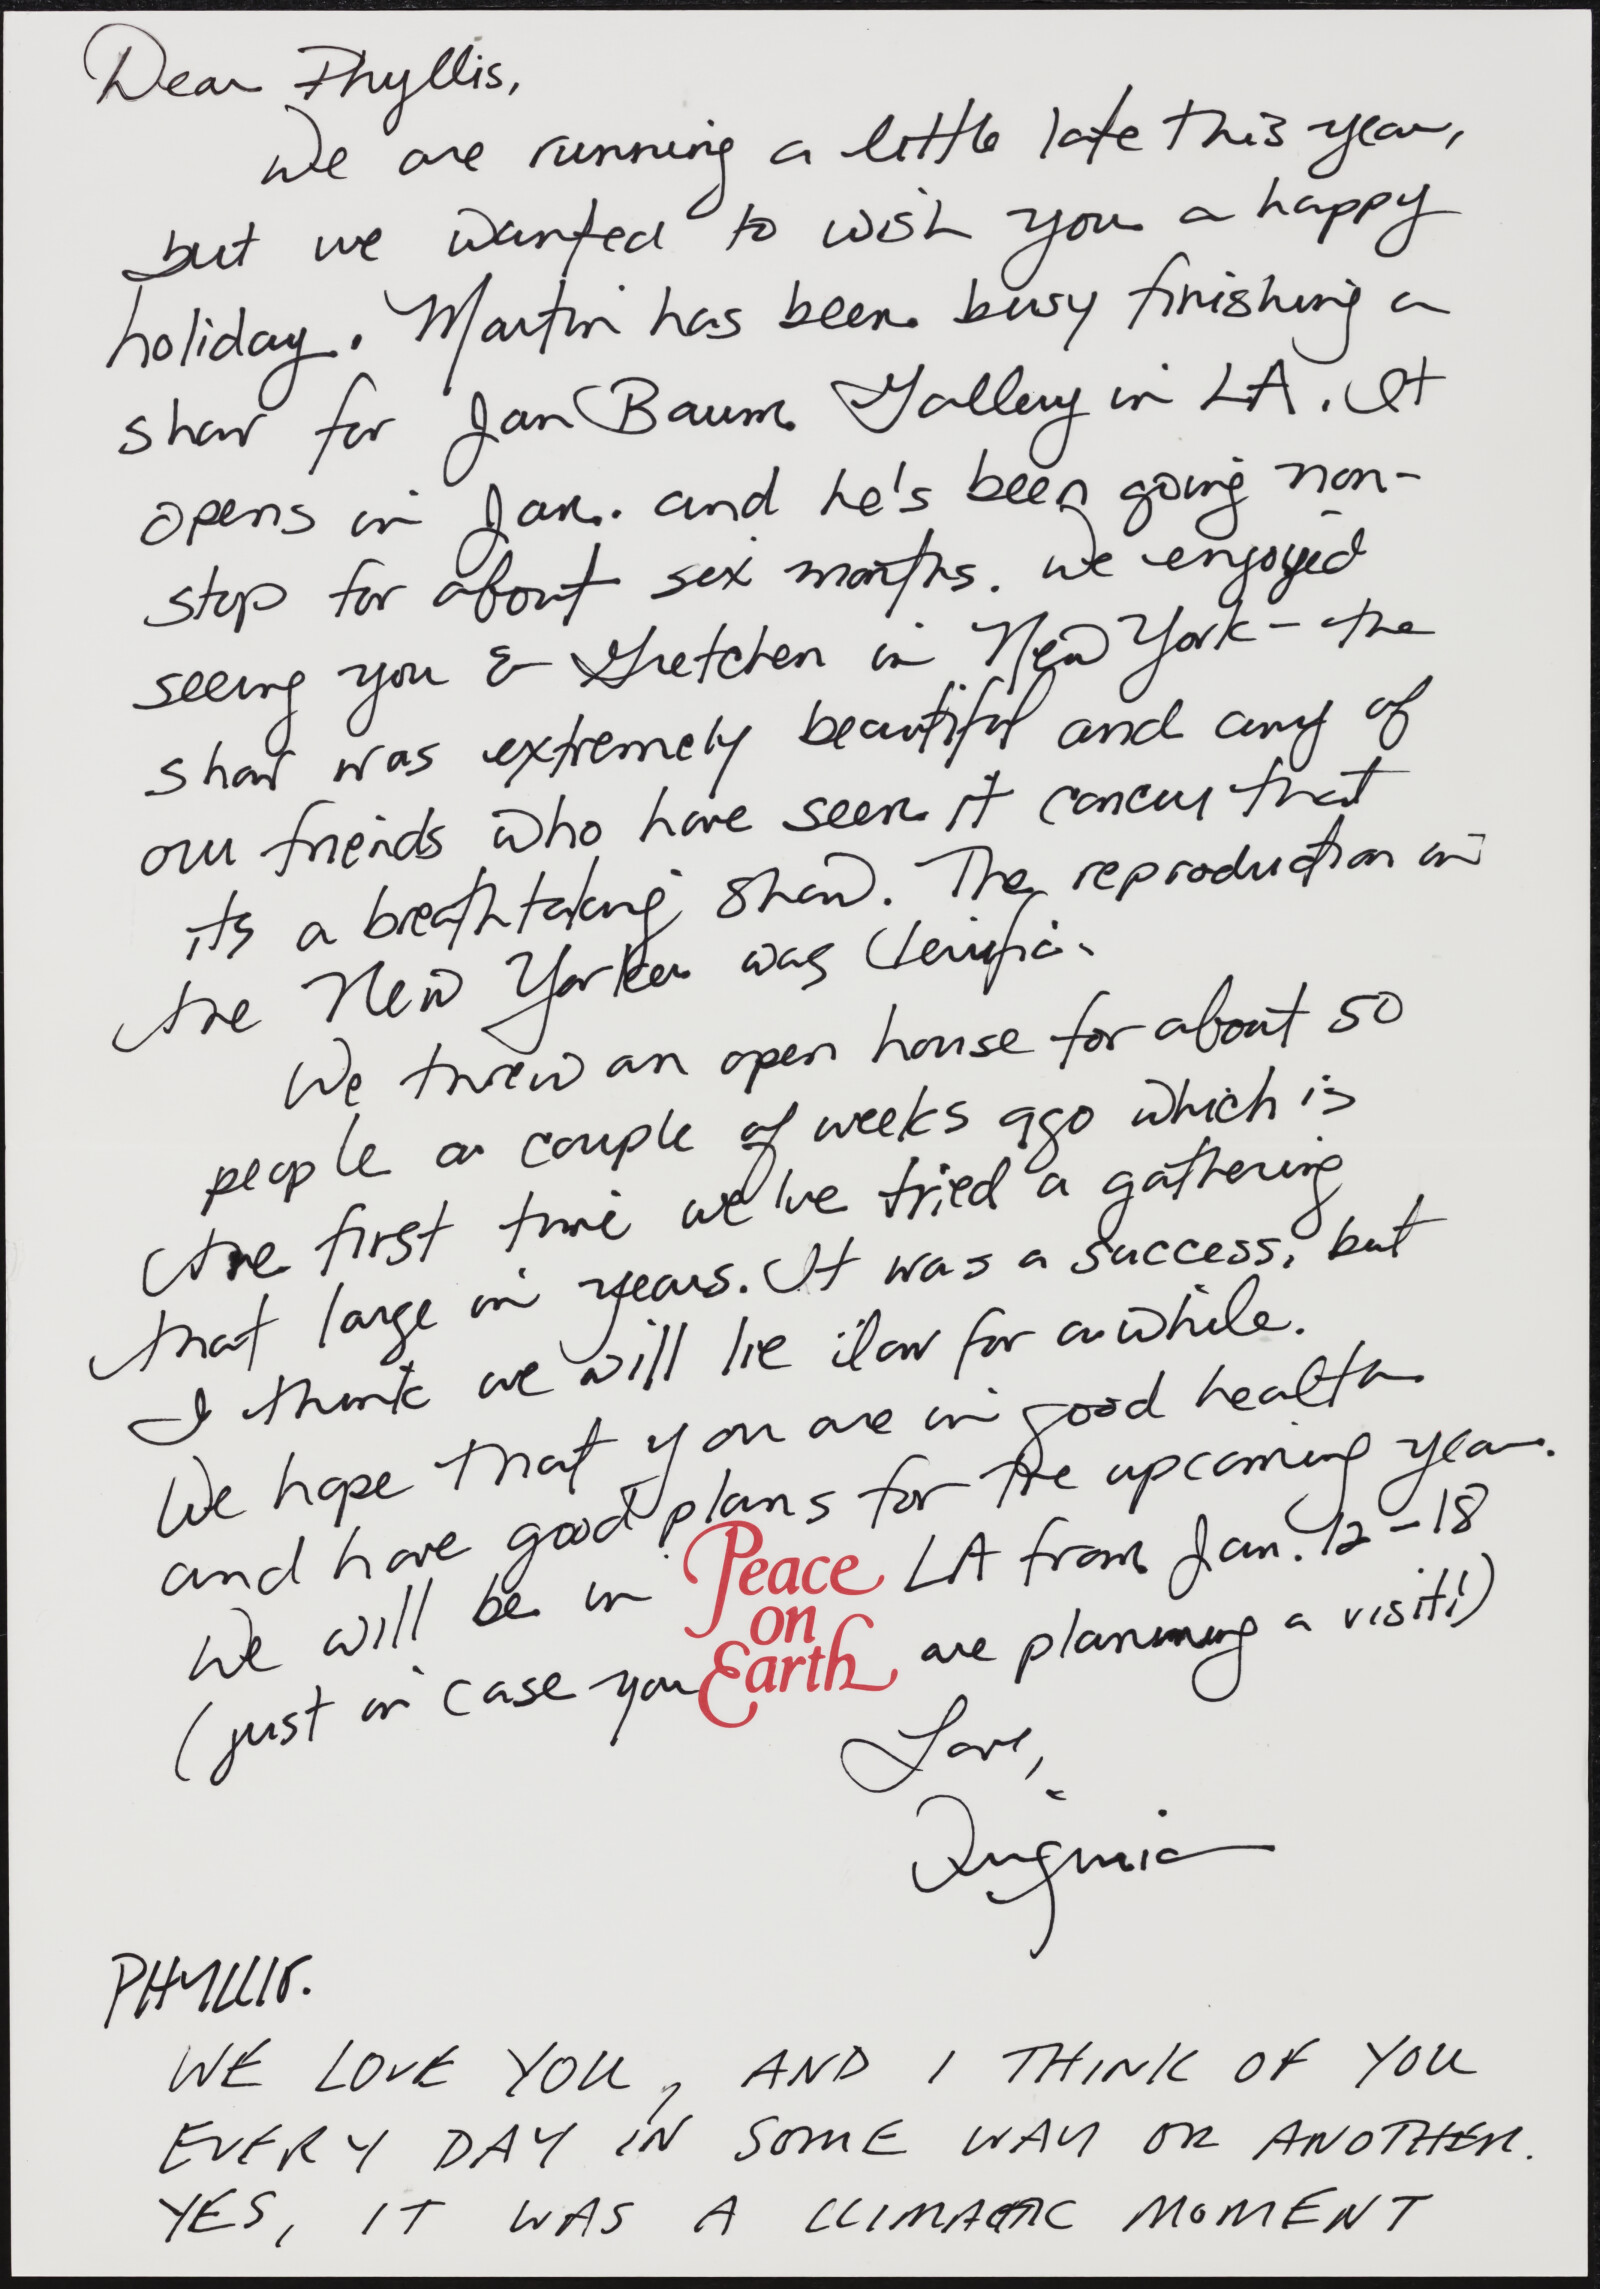 Dear Phyllis,
We are running a little late this year,
but we wanted to wish you a happy
holiday. Martin has been busy finishing a
show for Jan Baum Gallery in LA. It
opens in Jan. and he's been going non-
stop for about six months. We enjoyed
seeing you & Gretchen in New York - the
show was extremely beautiful and any of
our friends who have seen it concur that
its a breathtaking show. The reproduction in
the New Yorker was terrific.
We threw an open house for about 50
people a couple of weeks ago which is
the first time we've tried a gathering
that large in years. It was a success, but
I think we will lie low for awhile.
We hope that you are in good health
and have good plans for the upcoming year.
We will be in LA from Jan. 12-18
(just in case you are planning a visit!)
Peace
on
Earth
Love,
Virginia
PHYLLIS.
WE LOVE YOU, AND I THINK OF YOU
EVERY DAY IN SOME WAY OR ANOTHER.
YES, IT WAS A CLIMACTIC MOMENT